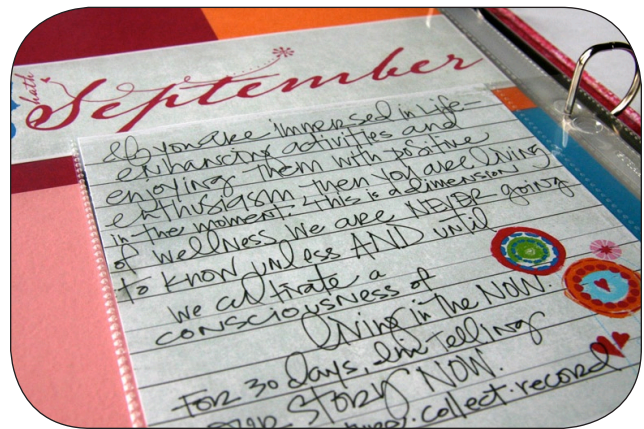 hath
September
If you are immersed in life-
enhancing activities and
enjoying them with positive
enthusiasm then you are living
in the moment. This is a dimension
of wellness we are NEVER going
to know unless AND until
we cultivate a
consciousness of
living in the NOW.
FOR 30 days, I'm Telling
OUR STORY NOW.
collect. record